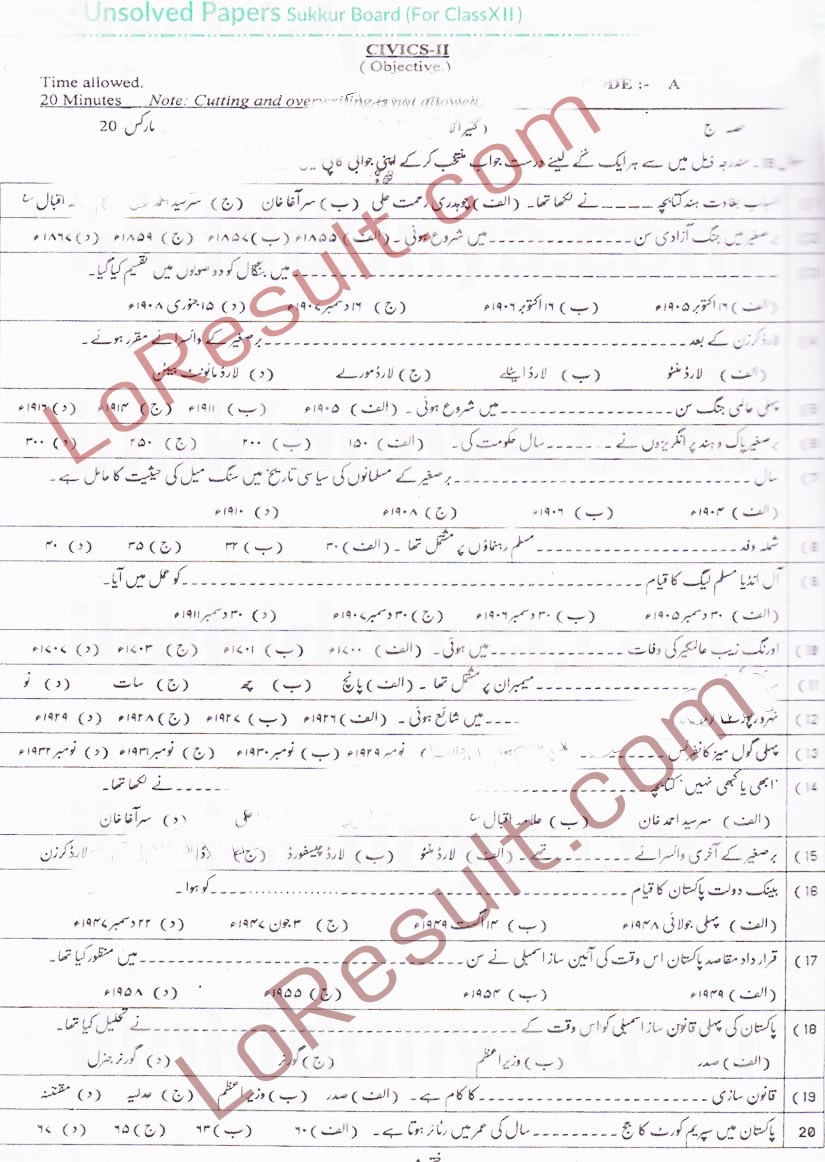 Unsolved Papers Sukkur Board (For ClassXII)
CIVICS-II
( Objective )
Time allowed. DE :- A
20 Minutes Note: Cutting and overwriting is not allowed.
حصہ ج مارکس 20
مندرجہ ذیل میں سے ہر ایک کے لیئے درست جواب منتخب کرکے اپنی جوابی کاپی
بغاوت ہند کتابچہ ـــــ نے لکھا تھا۔ (الف) چوہدری رحمت علی (ب) سر آغا خان (ج) سرسید احمد (د) اقبال
برصغیر میں جنگ آزادی سن ـــــ میں شروع ہوئی۔ (الف) ۱۸۵۵ء (ب) ۱۸۵۷ء (ج) ۱۸۵۹ء (د) ۱۸۶۷ء
ـــــ میں بنگال کو دو صوبوں میں تقسیم کیا گیا۔
(الف) ۱۶ اکتوبر ۱۹۰۵ء (ب) ۱۶ اکتوبر ۱۹۰۶ء (ج) ۱۶ دسمبر ۱۹۰۷ء (د) ۱۵ جنوری ۱۹۰۸ء
4) لارڈ کرزن کے بعد ـــــ برصغیر کے وائسرائے مقرر ہوئے۔
(الف) لارڈ منٹو (ب) لارڈ ایٹلے (ج) لارڈ مورلے (د) لارڈ مانونٹ بیٹن
5) پہلی عالمی جنگ سن ـــــ میں شروع ہوئی۔ (الف) ۱۹۰۵ء (ب) ۱۹۱۱ء (ج) ۱۹۱۴ء (د) ۱۹۱۶ء
6) برصغیر پاک و ہند پر انگریزوں نے ـــــ سال حکومت کی۔ (الف) ۱۵۰ (ب) ۲۰۰ (ج) ۲۵۰ (د) ۳۰۰
7) سال ـــــ برصغیر کے مسلمانوں کی سیاسی تاریخ میں سنگ میل کی حیثیت کا حامل ہے۔
(الف) ۱۹۰۴ء (ب) ۱۹۰۶ء (ج) ۱۹۰۸ء (د) ۱۹۱۰ء
8) شملہ وفد ـــــ مسلم رہنماؤں پر مشتمل تھا۔ (الف) ۳۰ (ب) ۳۲ (ج) ۳۵ (د) ۴۰
9) آل انڈیا مسلم لیگ کا قیام ـــــ کو عمل میں آیا۔
(الف) ۳۰ دسمبر ۱۹۰۵ء (ب) ۳۰ دسمبر ۱۹۰۶ء (ج) ۳۰ دسمبر ۱۹۰۷ء (د) ۳۰ دسمبر ۱۹۱۱ء
10) اورنگ زیب عالمگیر کی وفات ـــــ میں ہوئی۔ (الف) ۱۷۰۰ء (ب) ۱۷۰۱ء (ج) ۱۷۰۳ء (د) ۱۷۰۷ء
11) ـــــ میمبران پر مشتمل تھا۔ (الف) پانچ (ب) چھ (ج) سات (د) نو
12) نہرو رپورٹ ـــــ میں شائع ہوئی۔ (الف) ۱۹۲۶ء (ب) ۱۹۲۷ء (ج) ۱۹۲۸ء (د) ۱۹۲۹ء
13) پہلی گول میز کانفرنس ـــــ نومبر ۱۹۲۹ء (ب) نومبر ۱۹۳۰ء (ج) نومبر ۱۹۳۱ء (د) نومبر ۱۹۳۲ء
14) 'ابھی یا کبھی نہیں' کتابچہ ـــــ نے لکھا تھا۔
(الف) سرسید احمد خان (ب) علامہ اقبال علی (د) سر آغا خان
15) برصغیر کے آخری وائسرائے ـــــ تھے۔ (الف) لارڈ منٹو (ب) لارڈ چیمسفورڈ (ج) لارڈ کرزن
16) بینک دولت پاکستان کا قیام ـــــ کو ہوا۔
(الف) پہلی جولائی ۱۹۴۸ء (ب) ۱۴ اگست ۱۹۴۹ء (ج) ۳ جون ۱۹۴۷ء (د) ۲۲ دسمبر ۱۹۴۷ء
17) قرارداد مقاصد پاکستان اس وقت کی آئین ساز اسمبلی نے سن ـــــ میں منظور کیا تھا۔
(الف) ۱۹۴۹ء (ب) ۱۹۵۴ء (ج) ۱۹۵۵ء (د) ۱۹۵۸ء
18) پاکستان کی پہلی قانون ساز اسمبلی کو اس وقت کے ـــــ نے تحلیل کیا تھا۔
(الف) صدر (ب) وزیراعظم (ج) گورنر (د) گورنر جنرل
19) قانون سازی ـــــ کا کام ہے۔ (الف) صدر (ب) وزیراعظم (ج) عدلیہ (د) مقننہ
20 پاکستان میں سپریم کورٹ کا جج ـــــ سال کی عمر میں رٹائر ہوتا ہے۔ (الف) ۶۰ (ب) ۶۳ (ج) ۶۵ (د) ۶۷
LoResult.com
LoResult.com